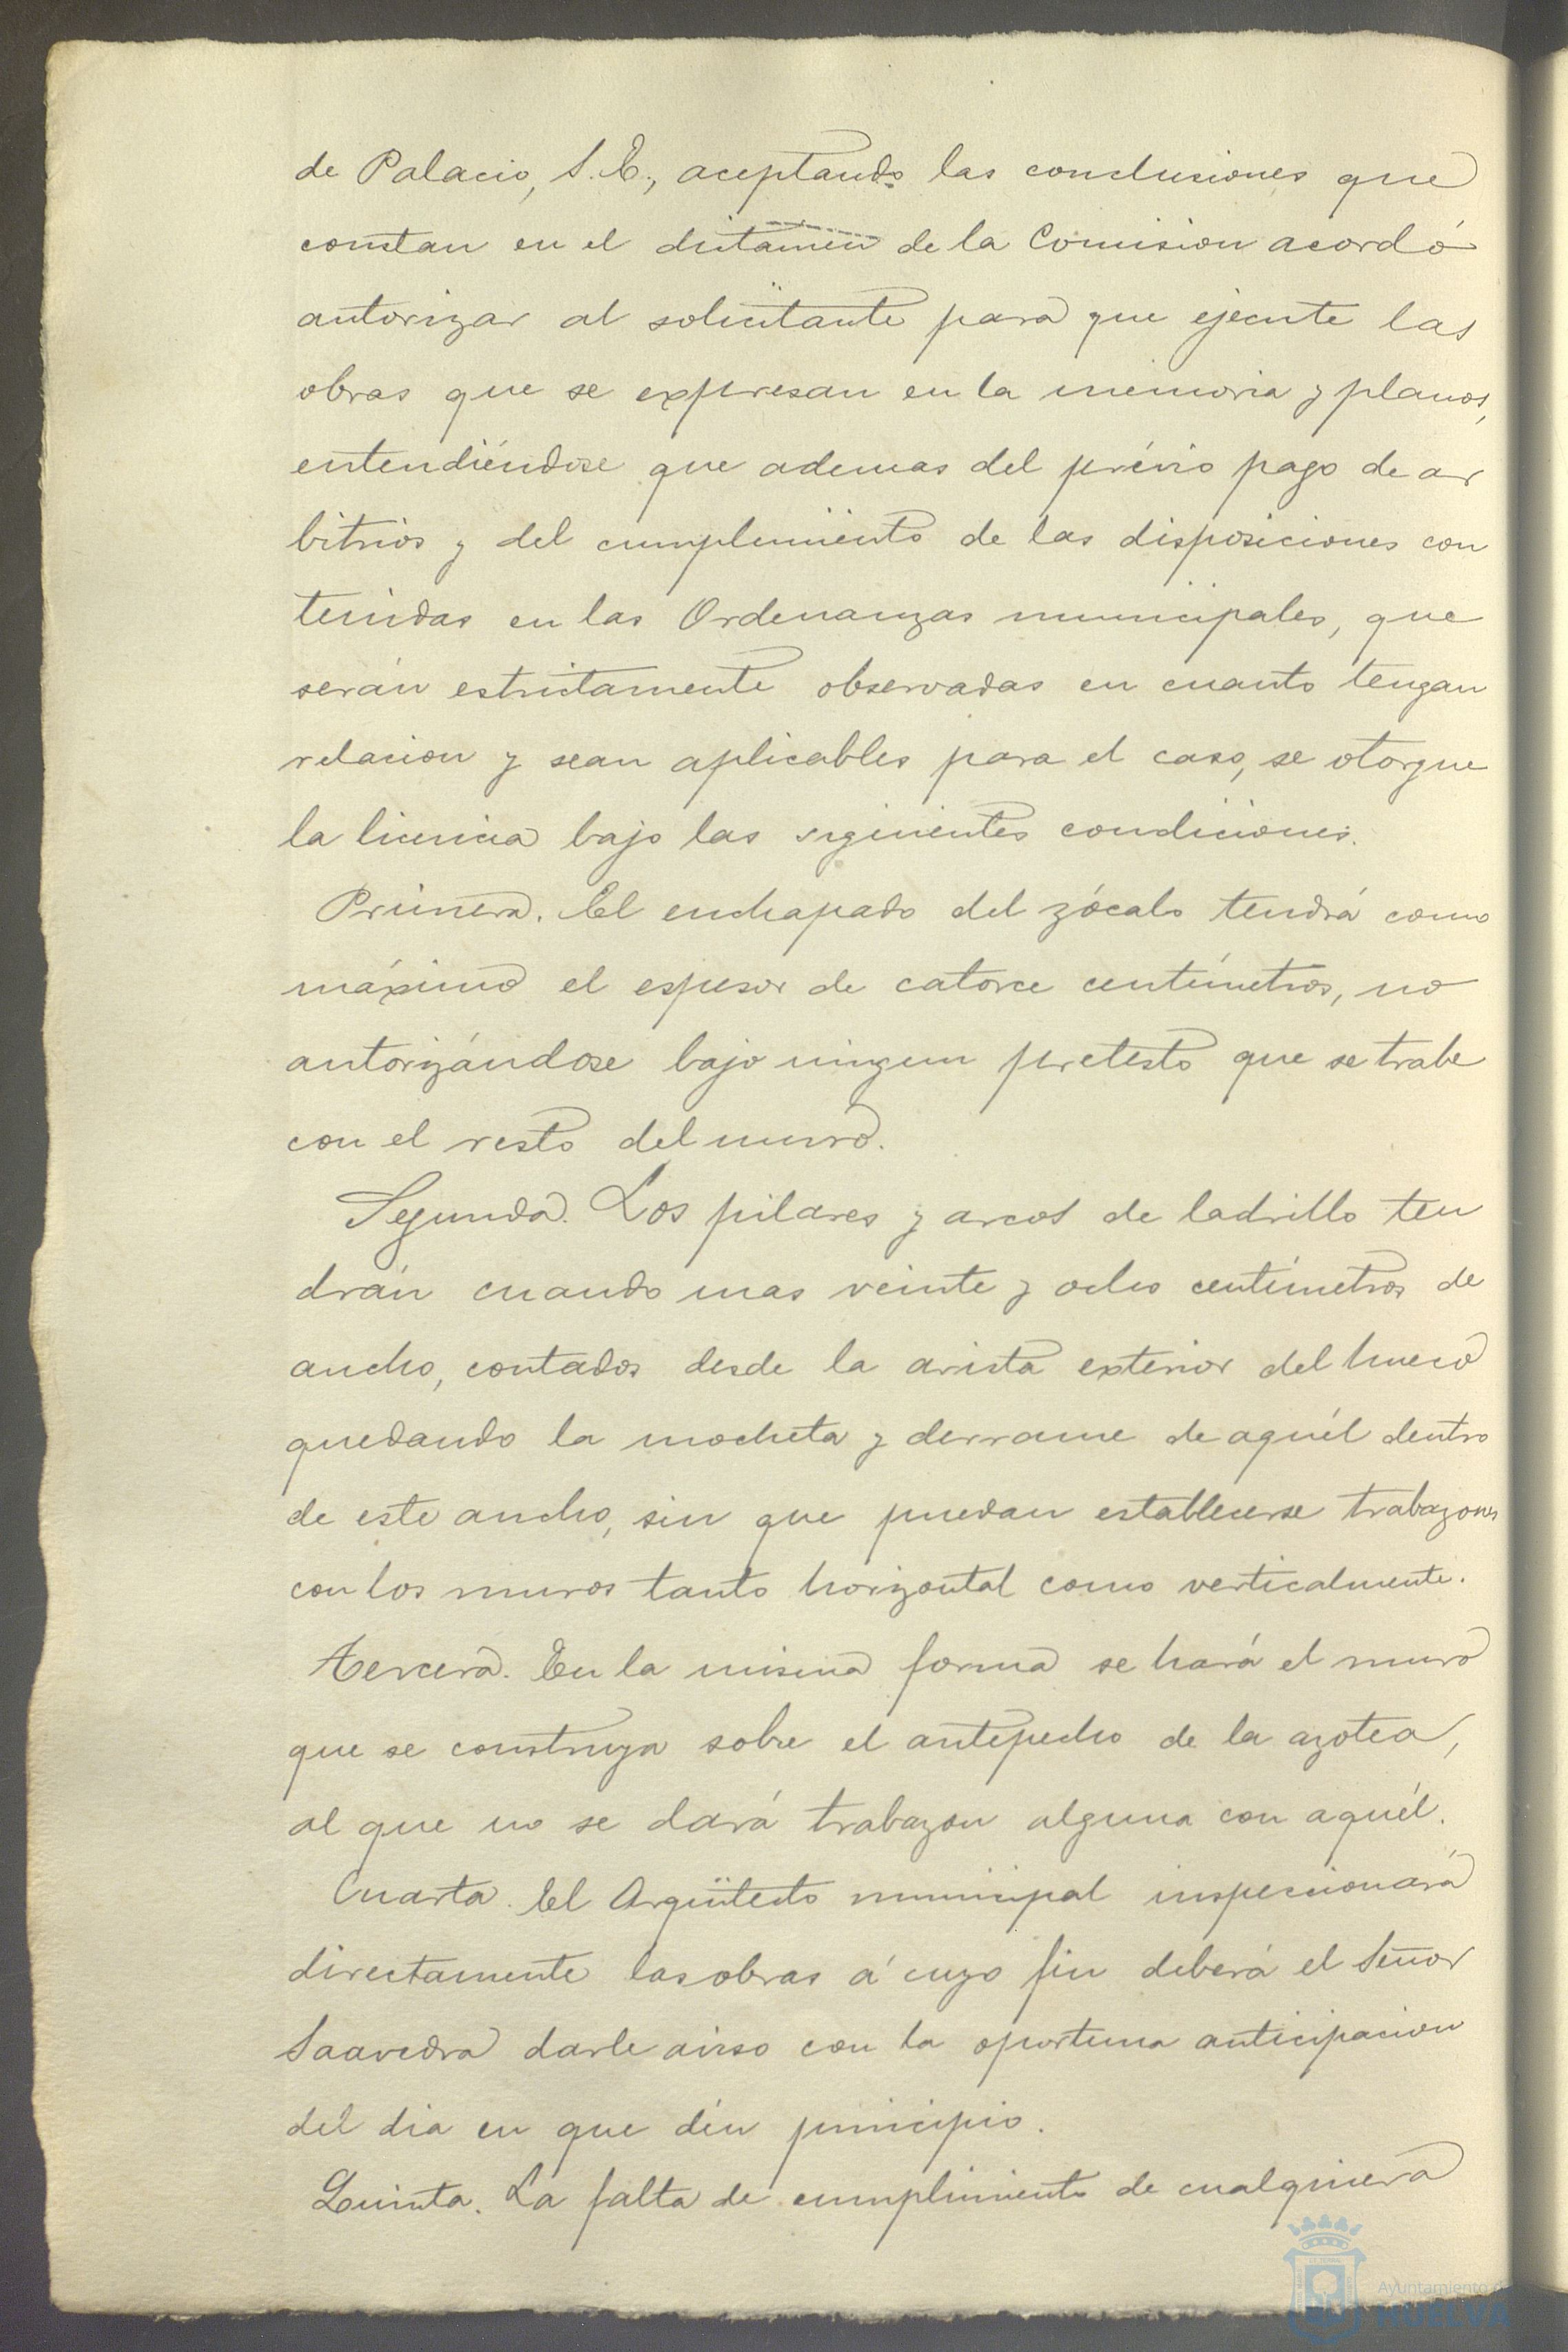 de Palacio, S. E., aceptando las conclusiones que
constan en el dictamen de la Comision acordó
autorizar al solicitante para que ejecute las
obras que se expresan en la memoria y planos,
entendiéndose que ademas del prévio pago de ar
bitrios y del cumplimiento de las disposiciones con
tenidas en las Ordenanzas municipales, que
serán estrictamente observadas en cuanto tengan
relacion y sean aplicables para el caso, se otorgue
la licencia bajo las siguientes condiciones.
Primera. El enchapado del zócalo tendrá como
máximo el espesor de catorce centímetros, no
autorizándose bajo ningun pretesto que se trabe
con el resto del muro.
Segunda. Los pilares y arcos de ladrillo ten
drán cuando mas veinte y ocho centímetros de
ancho, contados desde la arista exterior del hueco
quedando la mocheta y derrame de aquél dentro
de este ancho, sin que puedan establecerse trabazones
con los muros tanto horizontal como verticalmente.
Tercera. En la misma forma se hará el muro
que se construya sobre el antepecho de la azotea,
al que no se dará trabazon alguna con aquél.
Cuarta. El Arquitecto municipal inspeccionará
directamente las obras á cuyo fin deberá el Señor
Saavedra darle aviso con la oportuna anticipacion
del dia en que dén principio.
Quinta. La falta de cumplimiento de cualquiera
Ayuntamiento de
HUELVA